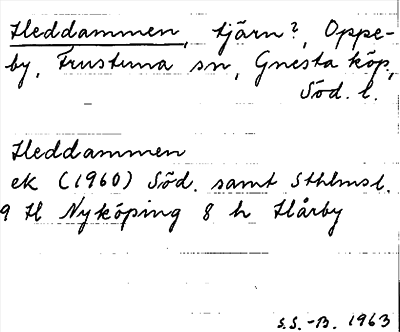 Heddammen, tjärn?, Oppe-
by, Frustuna sn, Gnesta köp.,
Söd. l.
Heddammen
ek (1960) Söd. samt Sthlmsl.
9 H Nyköping 8 h Hårby
S.S.-B. 1963